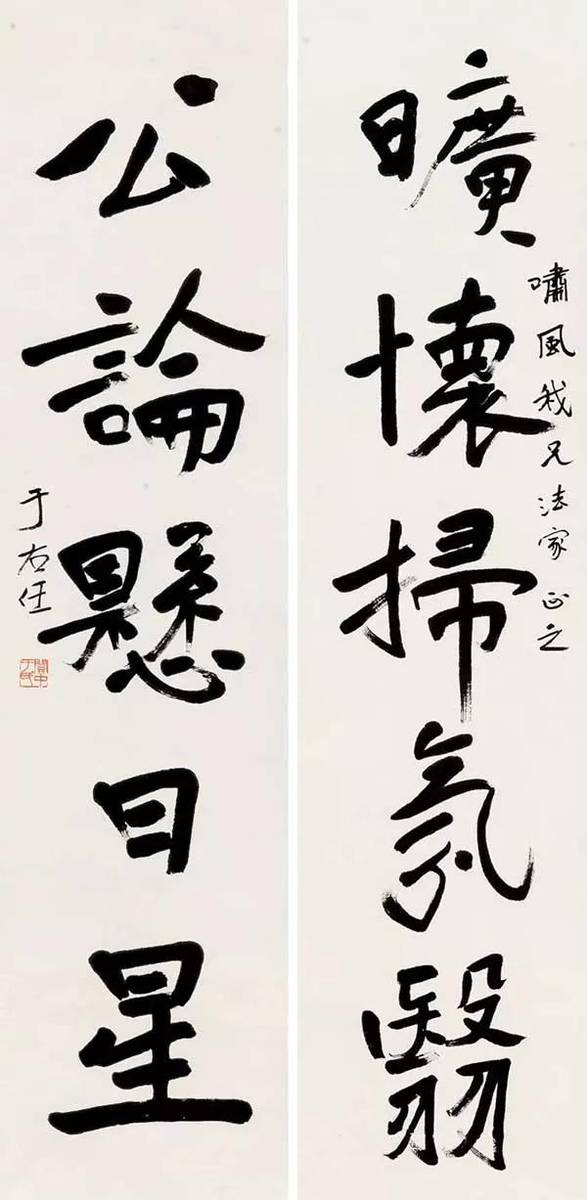 曠懷掃氛翳
嘯風我兄法家正之
公論懸日星
于右任
關中于氏